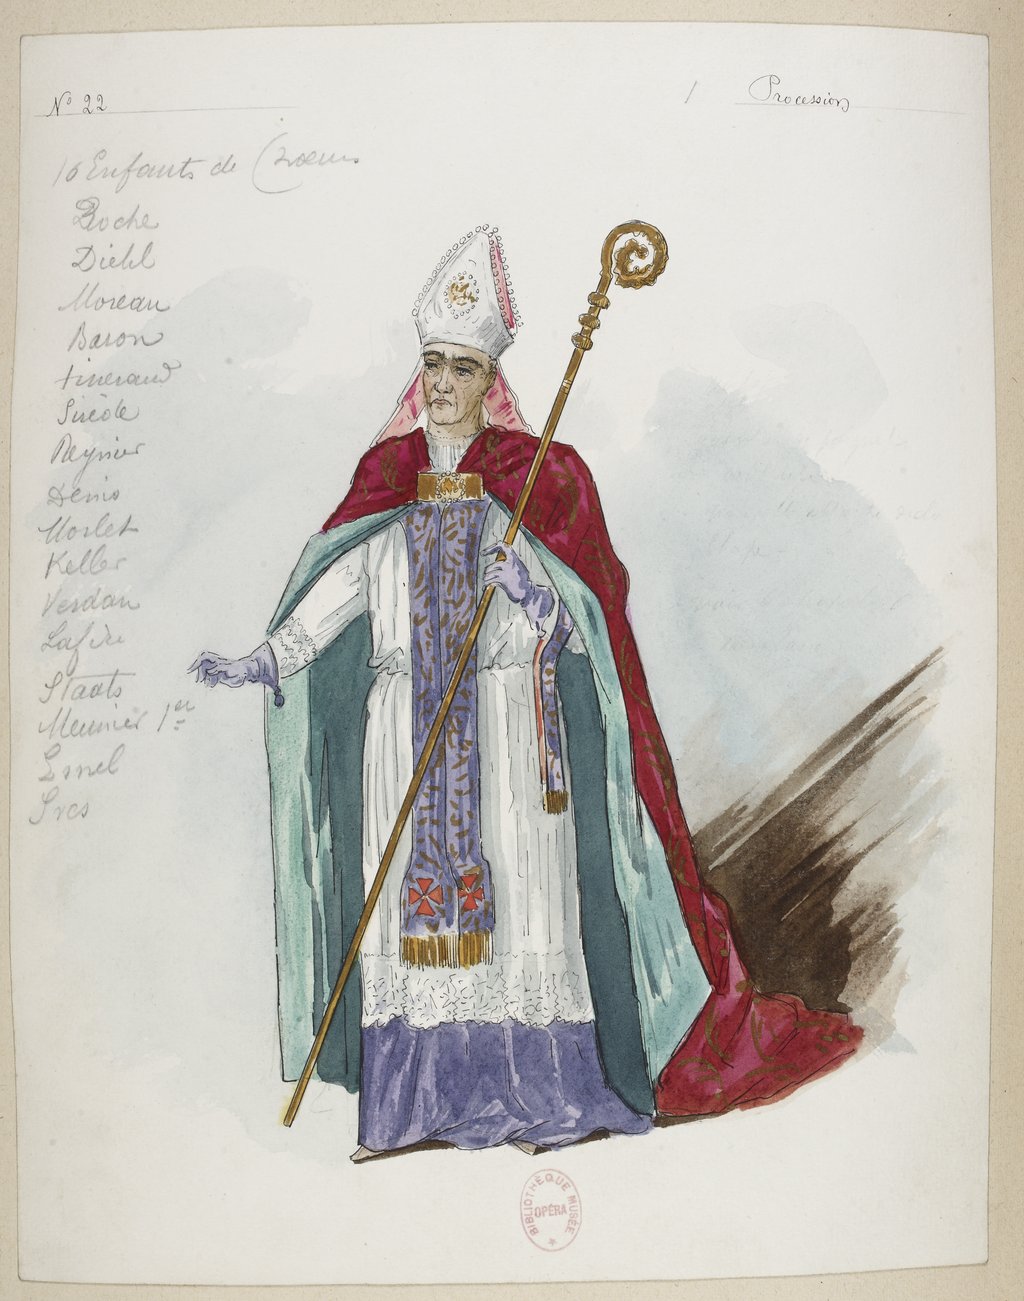 Nº 22
1 Procession
16 Enfants de Chœurs
Roche
Diehl
Moreau
Baron
Sirède
Reynier
Denis
Morlet
Keller
Verdan
Staats
Meunier 1er
BIBLIOTHÈQUE MUSÉE
OPÉRA